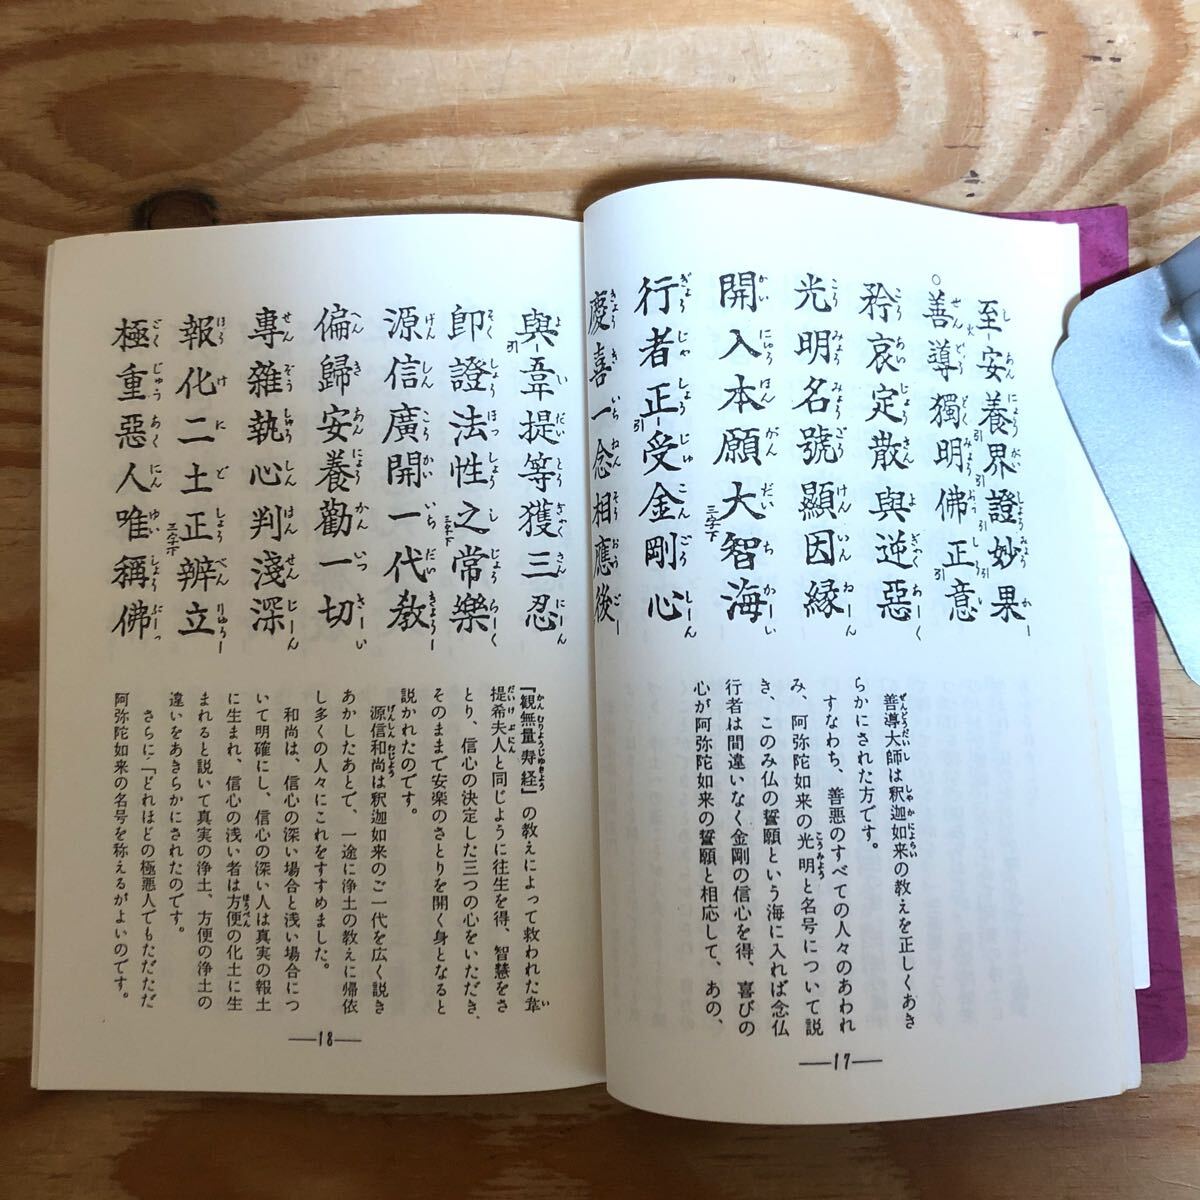 至安養界證妙果
善導獨明佛正意
矜哀定散與逆惡
光明名號顯因縁
開入本願大智海
行者正受金剛心
慶喜一念相應後
善導大師は釈迦如来の教えを正しくあき
らかにされた方です。
すなわち、善悪のすべての人々のあわれ
み、阿弥陀如来の光明と名号について説
き、このみ仏の誓願という海に入れば念仏
行者は間違いなく金剛の信心を得、喜びの
心が阿弥陀如来の誓願と相応して、あの、
—17—
與韋提等獲三忍
卽證法性之常樂
源信廣開一代教
偏歸安養勸一切
專雜執心判淺深
報化二土正辨立
極重惡人唯稱佛
『観無量寿経』の教えによって救われた韋
提希夫人と同じように往生を得、智慧をさ
とり、信心の決定した三つの心をいただき、
そのままで安楽のさとりを開く身となると
説かれたのです。
源信和尚は釈迦如来のご一代を広く説き
あかしたあとで、一途に浄土の教えに帰依
し多くの人々にこれをすすめました。
和尚は、信心の深い場合と浅い場合につ
いて明確にし、信心の深い人は真実の報土
に生まれ、信心の浅い者は方便の化土に生
まれると説いて真実の浄土、方便の浄土の
違いをあきらかにされたのです。
さらに「どれほどの極悪人でもただただ
阿弥陀如来の名号を称えるがよいのです。
—18—